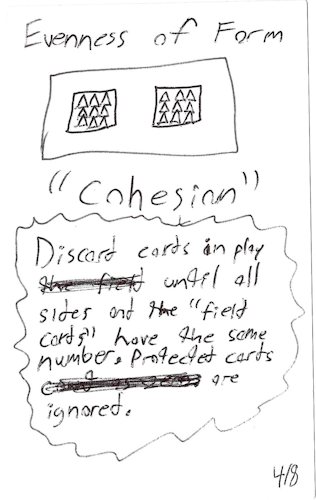 Evenness of Form
"Cohesion"
Discard cards in play
until all
sides and the "field
cards" have the same
number. Protected cards
are
ignored.
4/8